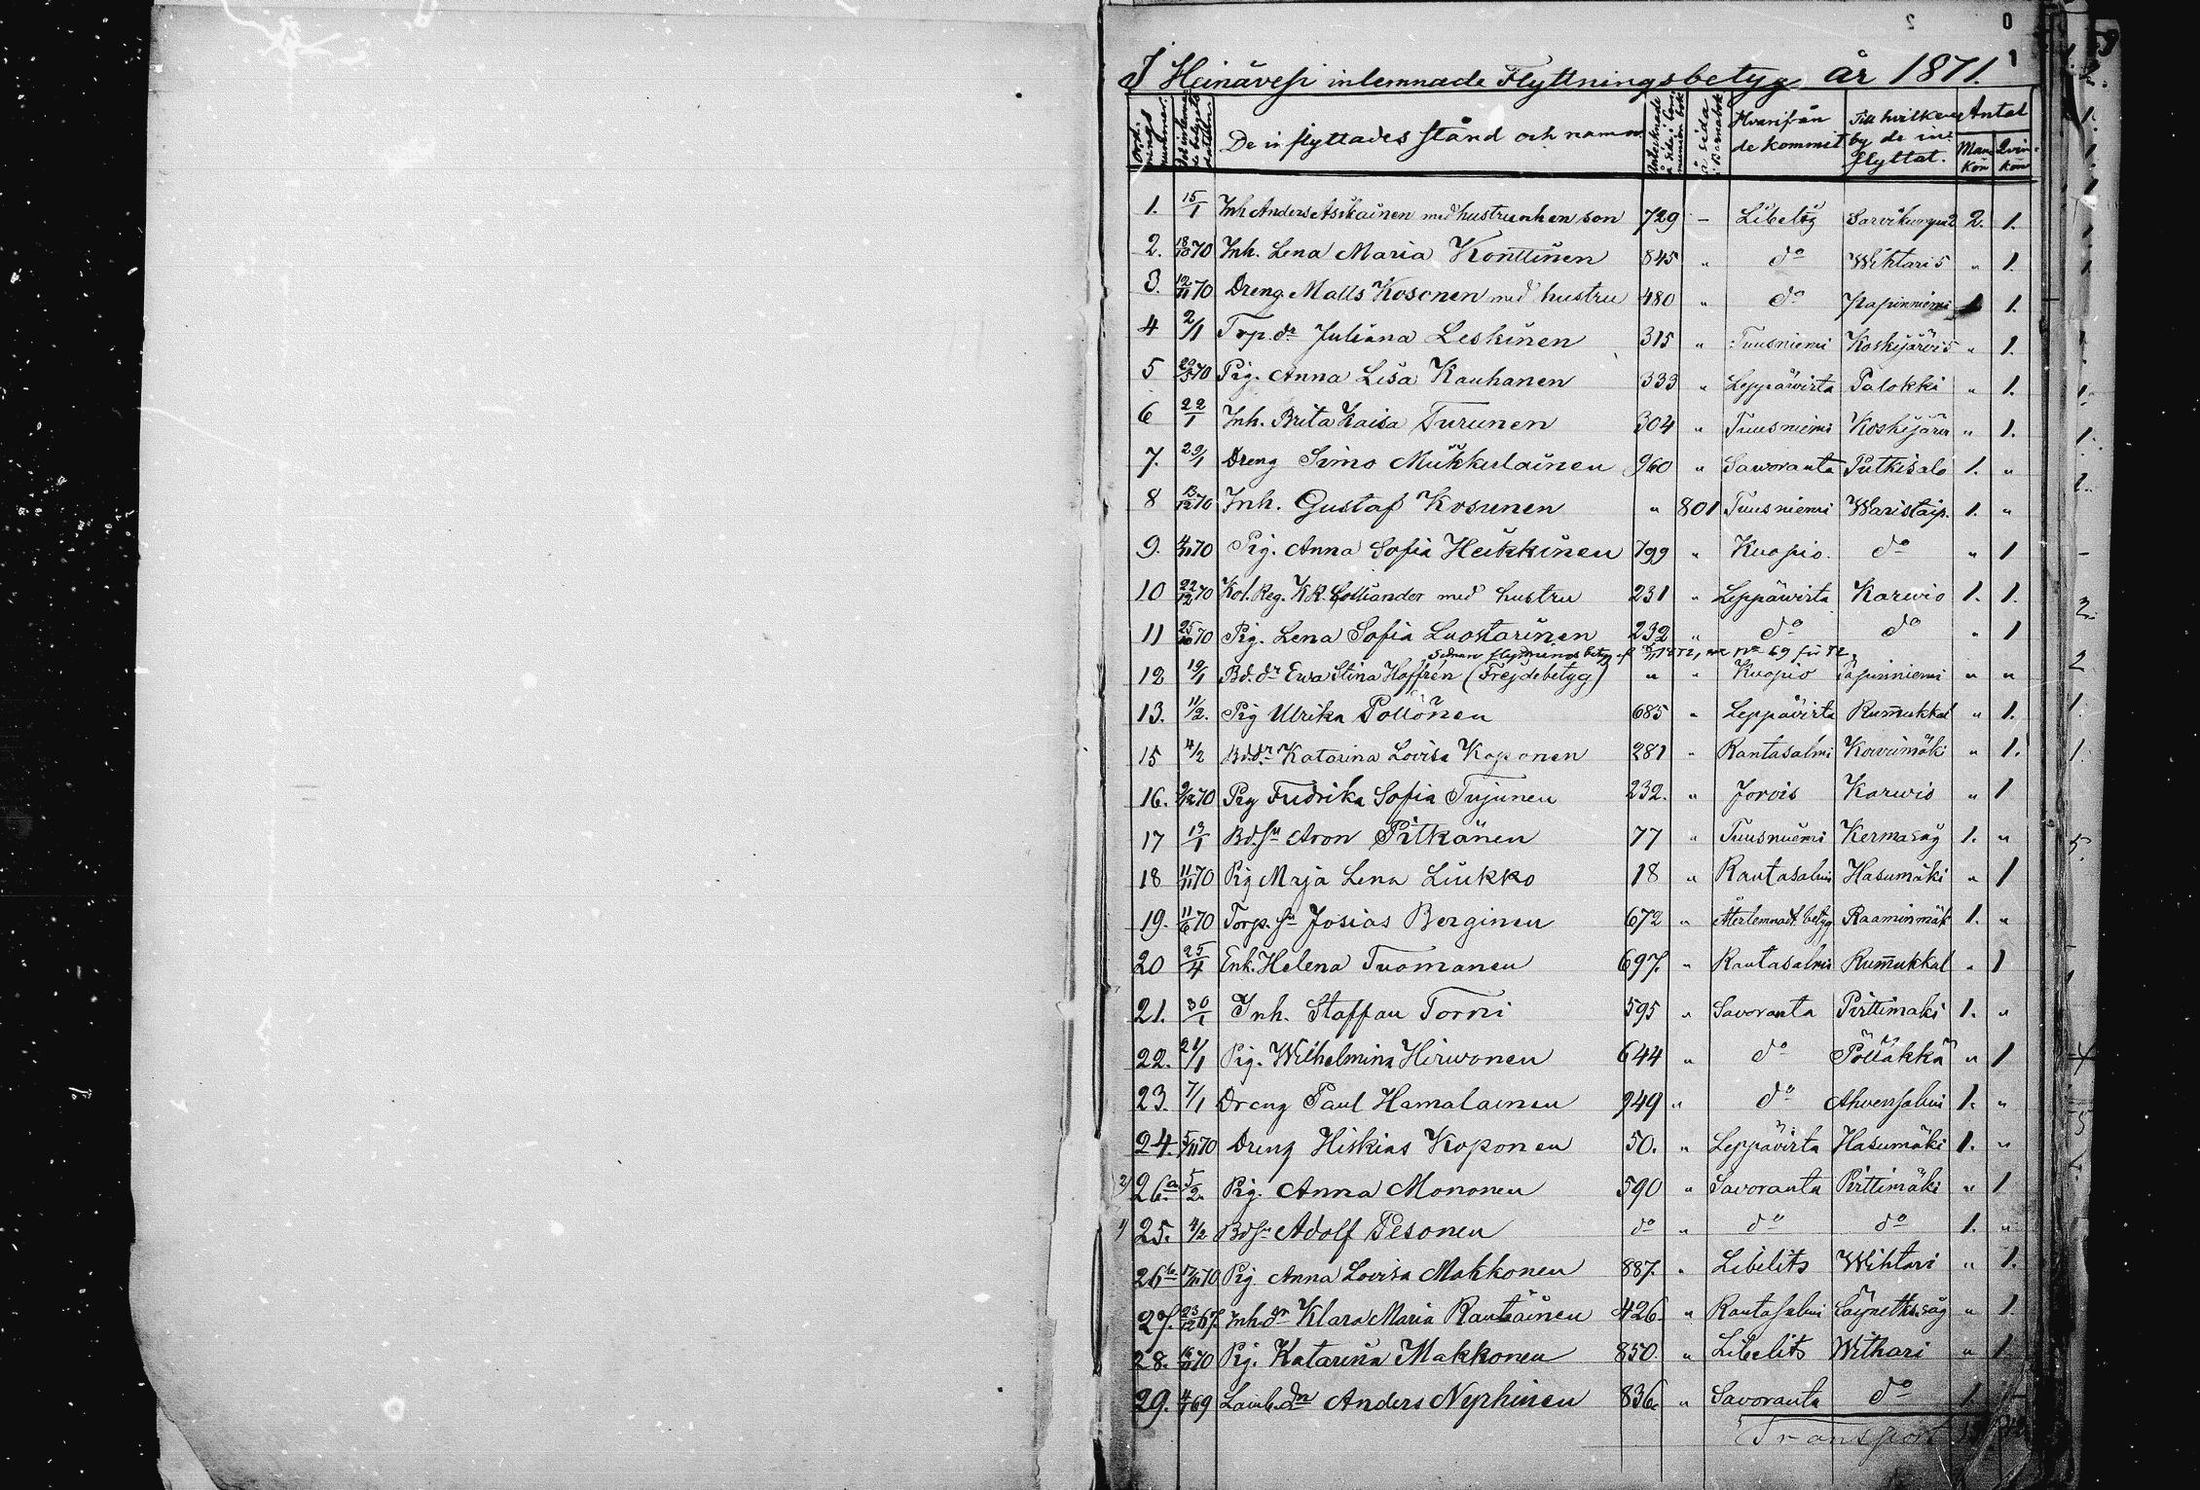 I Heinävesi inlemnade Flyttningsbetyg år 1871.
De inflyttades stånd och namn å sida i Barnabok Hvarifrån de kommit Till hvilken by de inflyttat. Antal Mankön Qvinkön
1. 15/1 Inh Anders Asikainen med hustru och en son 729 - Libelitz 2. 1.
2. 18/10 70 Inh. Lena Maria Konttinen 845 " do Wihtari 5 " 1.
3. 12/11 70 Dreng. Matts Kosonen med hustru 480 " do Papinniemi 1 1.
4 2/1 Torp. dr Juliana Leskinen 315 " Tuusniemi Koskijärvi 5 " 1.
5 70 Pig. Anna Lisa Kauhanen 333 " Leppävirta Palokki " 1.
6 22/1 Inh. Brita Kaisa Turunen 304 " Tuusniemi Koskijärvi " 1.
7. 29/1 Dreng Simo Mükkerlainen 960 " Saworanta Putkisalo 1. "
8 13/12 70 Inh. Gustaf Kosunen " 801 Tuusniemi Waristaip. 1. "
9. 4/11 70 Pig. Anna Sofia Heikkinen 799 " Kuopio. do " 1
10 22/12 70 Kol. Reg. K.R. Molliander med hustru 231 " Leppäwirta Karwio 1. 1.
11 25/10 70 Pig. Lena Sofia Luostarinen 232 " do do " 1
No 69 för 72.
12 19/1 Bd. dr Ewa Stina Hoffrén (Frejdebetyg) " " Kuopio Papinniemi " "
13. 11/2. Pig Ulrika Pöllönen 685 " Leppävirta Rummukkal " 1.
15 4/2 Bd. dr Katarina Lovisa Koponen 281 " Rantasalmi Kowimäki " 1.
16. 9/12 70 Pig Fredrika Sofia Tujunen 232. " Jorois Karwio " 1
17 13/1 Bd. sn Aron Pitkänen 77 " Tuusniemi Kermasåg 1. "
18 11/11 70 Pig Maja Lena Liukko 18 " Rantasalmi Hasumäki " 1
19. 11/6 70 Torp. sn Josias Berginen 672 " Återlemnadt betyg Raaminmäk 1. "
20 25/4 Enk. Helena Tuomanen 697. " Rantasalmi Rummukkal " 1
21. 30/1 Inh. Staffan Torni 595 " Savoranta Pirttimäki 1. "
22. 21/1 Pig. Wilhelmina Hirwonen 644 " do Pölläkkä " 1
23. 7/1 Dreng Paul Hamalainen 949 " do Ahvensalmi 1. "
24. 5/11 70 Dreng Hiskias Koponen 50. " Leppävirta Hasumäki 1. "
2) 26.a 5/2. Pig. Anna Mononen 590 " Savoranta Pirttimäki " 1
1) 25. 4/2 Bdsn Adolf Pesonen do " do do 1. "
26 b 17/11 70 Pig Anna Lovisa Makkonen 887. " Libelits Wihtari " 1.
27. 23/12 67. Inh. dr Klara Maria Rautiainen 426. " Rantasalmi " 1.
28. 16/11 70 Pig. Katarina Makkonen 850. " Libelits Withari " 1.
29. 4/1 69 Anders Nyrhinen 836. " Savoranta do 1. "
Transport